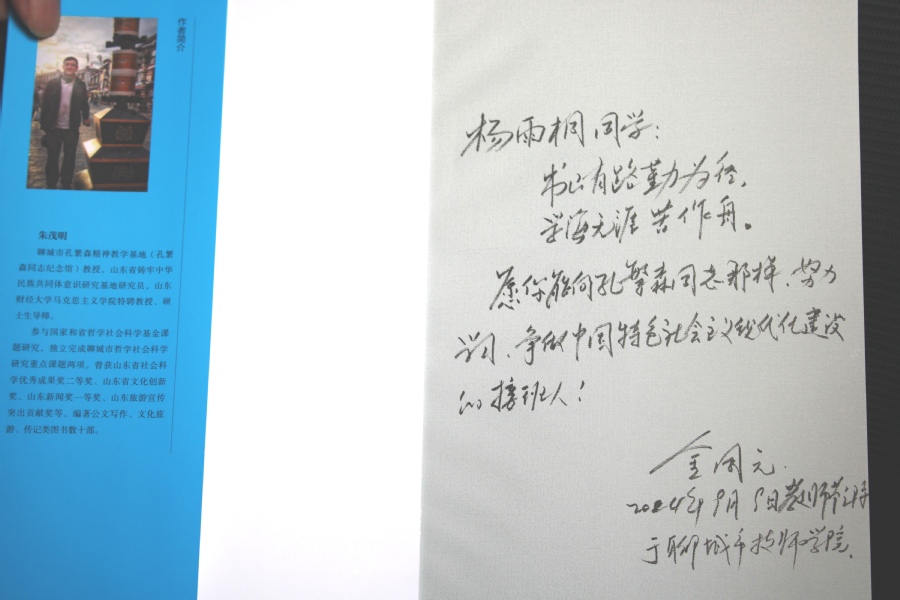 作者简介
朱茂明
聊城市孔繁森精神教学基地（孔繁
森同志纪念馆）教授，山东省铸牢中华
民族共同体意识研究基地研究员，山东
财经大学马克思主义学院特聘教授、硕
士生导师。
参与国家和省哲学社会科学基金课
题研究，独立完成聊城市哲学社会科学
研究重点课题两项。曾获山东省社会科
学优秀成果奖二等奖、山东省文化创新
奖、山东新闻奖一等奖、山东旅游宣传
突出贡献奖等。编著公文写作、文化旅
游、传记类图书数十部。
杨雨桐同学：
书山有路勤为径，
学海无涯苦作舟。
愿你能向孔繁森同志那样，努力
学习、争做中国特色社会主义现代化建设
的接班人！
金同元
2024年9月
于聊城市技师学院